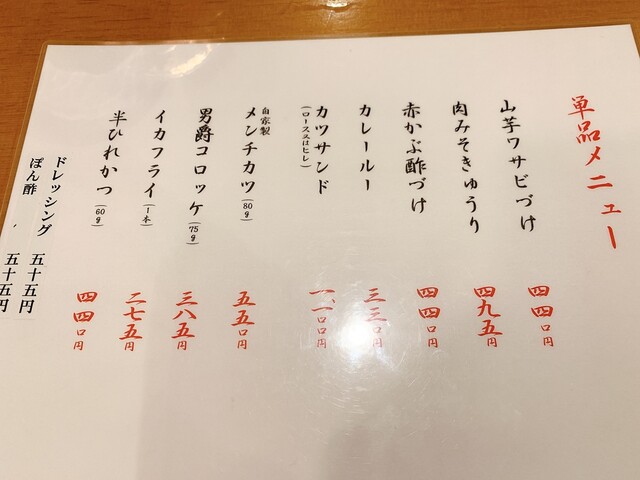 単品メニュー
山芋ワサビづけ 四四〇円
肉みそきゅうり 四九五円
赤かぶ酢づけ 四四〇円
カレールー 三三〇円
カツサンド (ロース又はヒレ) 一、一〇〇円
自家製 メンチカツ (80g) 五五〇円
男爵コロッケ (75g) 三八五円
イカフライ (1本) 二七五円
半ひれかつ (60g) 四四〇円
ドレッシング 五十五円
ぽん酢 、 五十五円